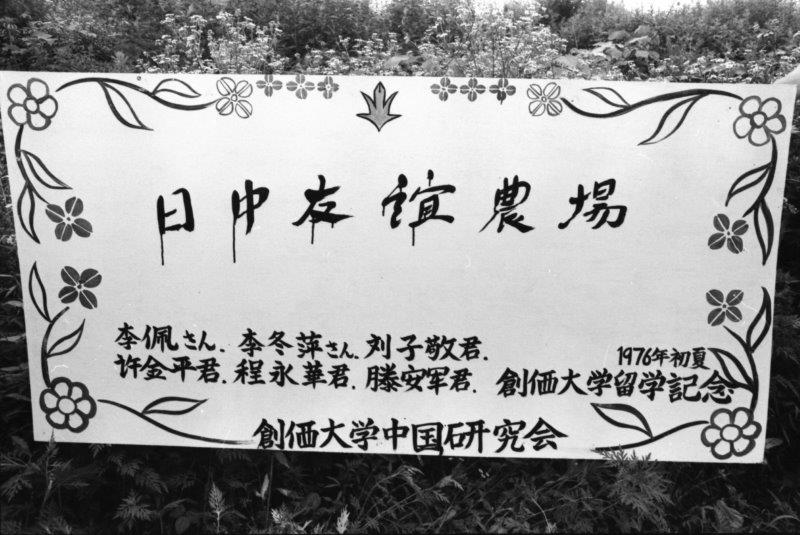 日中友誼農場
李佩さん、李冬萍さん、刘子敬君、
许金平君、程永華君、滕安军君、
1976年初夏
創価大学留学記念
創価大学中国研究会